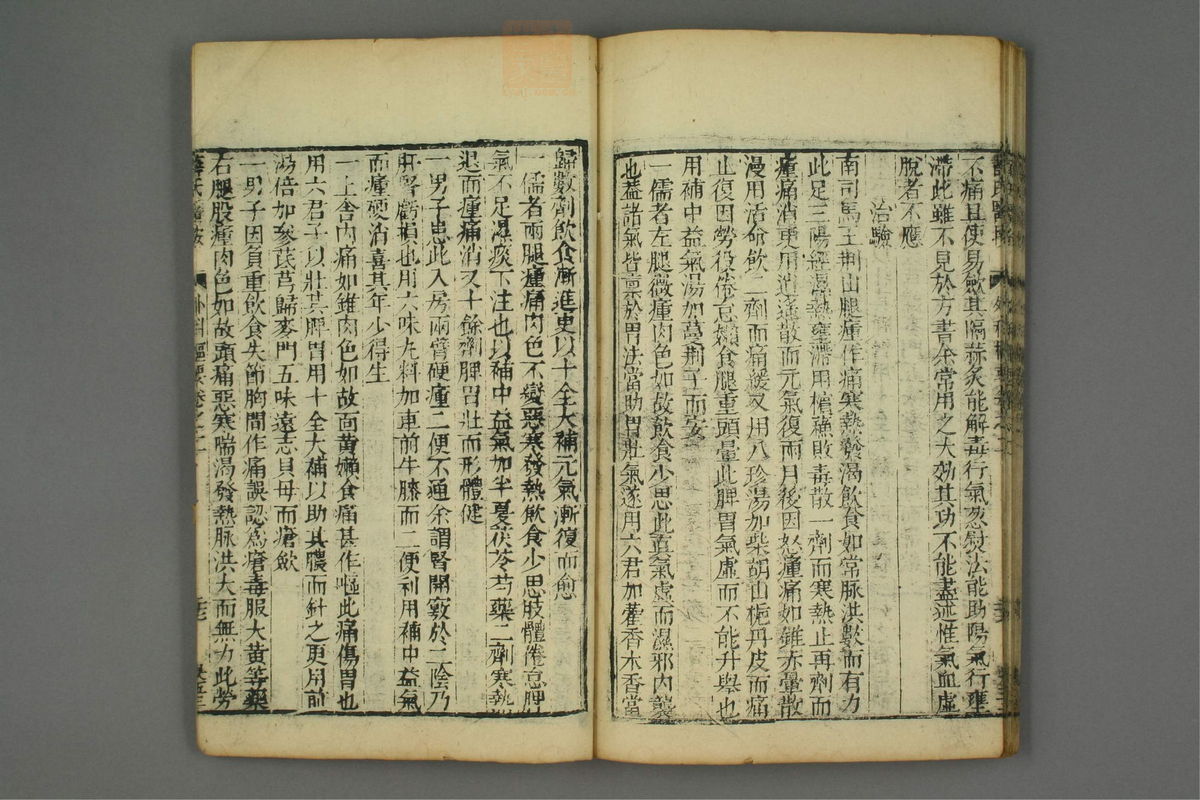 不痛且使易斂其隔蒜灸能解毒行氣葱熨法能助陽氣行壅
滯此雖不見於方書余常用之大効其功不能盡述惟氣血虛
脫者不應
治驗
南司馬王荆山腿腫作痛寒熱發渴飲食如常脉洪數而有力
此足三陽經濕熱壅滯用檳蘇敗毒散一劑而寒熱止再劑而
腫痛消更用逍遙散而元氣復兩月後因怒腫痛如錐赤暈散
漫用活命飲二劑而痛緩又用八珍湯加柴胡山梔丹皮而痛
止復因勞役倦怠懶食腿重頭暈此脾胃氣虛而不能升舉也
用補中益氣湯加蔓荆子而安
一儒者左腿微腫肉色如故飲食少思此真氣虛而濕邪內襲
也葢諸氣皆禀於胃法當助胃壯氣遂用六君加藿香木香當
歸數劑飲食漸進更以十全大補元氣漸復而愈
一儒者兩腿腫痛肉色不變惡寒發熱飲食少思肢體倦怠脾
氣不足濕痰下注也以補中益氣加半夏茯苓芍藥二劑寒熱
退而腫痛消又十餘劑脾胃壯而形體健
一男子患此入房兩臀硬腫二便不通余謂腎開竅於二陰乃
腎虧損也用六味丸料加車前牛膝而二便利用補中益氣
而腫硬消喜其年少得生
一上舍內痛如錐肉色如故面黃懶食痛甚作嘔此痛傷胃也
用六君子以壯其脾胃用十全大補以助其膿而針之更用前
湯倍加參芪芎歸麥門五味遠志貝母而瘡飲
一男子因負重飲食失節胸間作痛誤認為瘡毒服大黃等藥
右腿股腫肉色如故頭痛惡寒喘渴發熱脉洪大而無力此勞
薛氏醫按
外科樞要卷之二